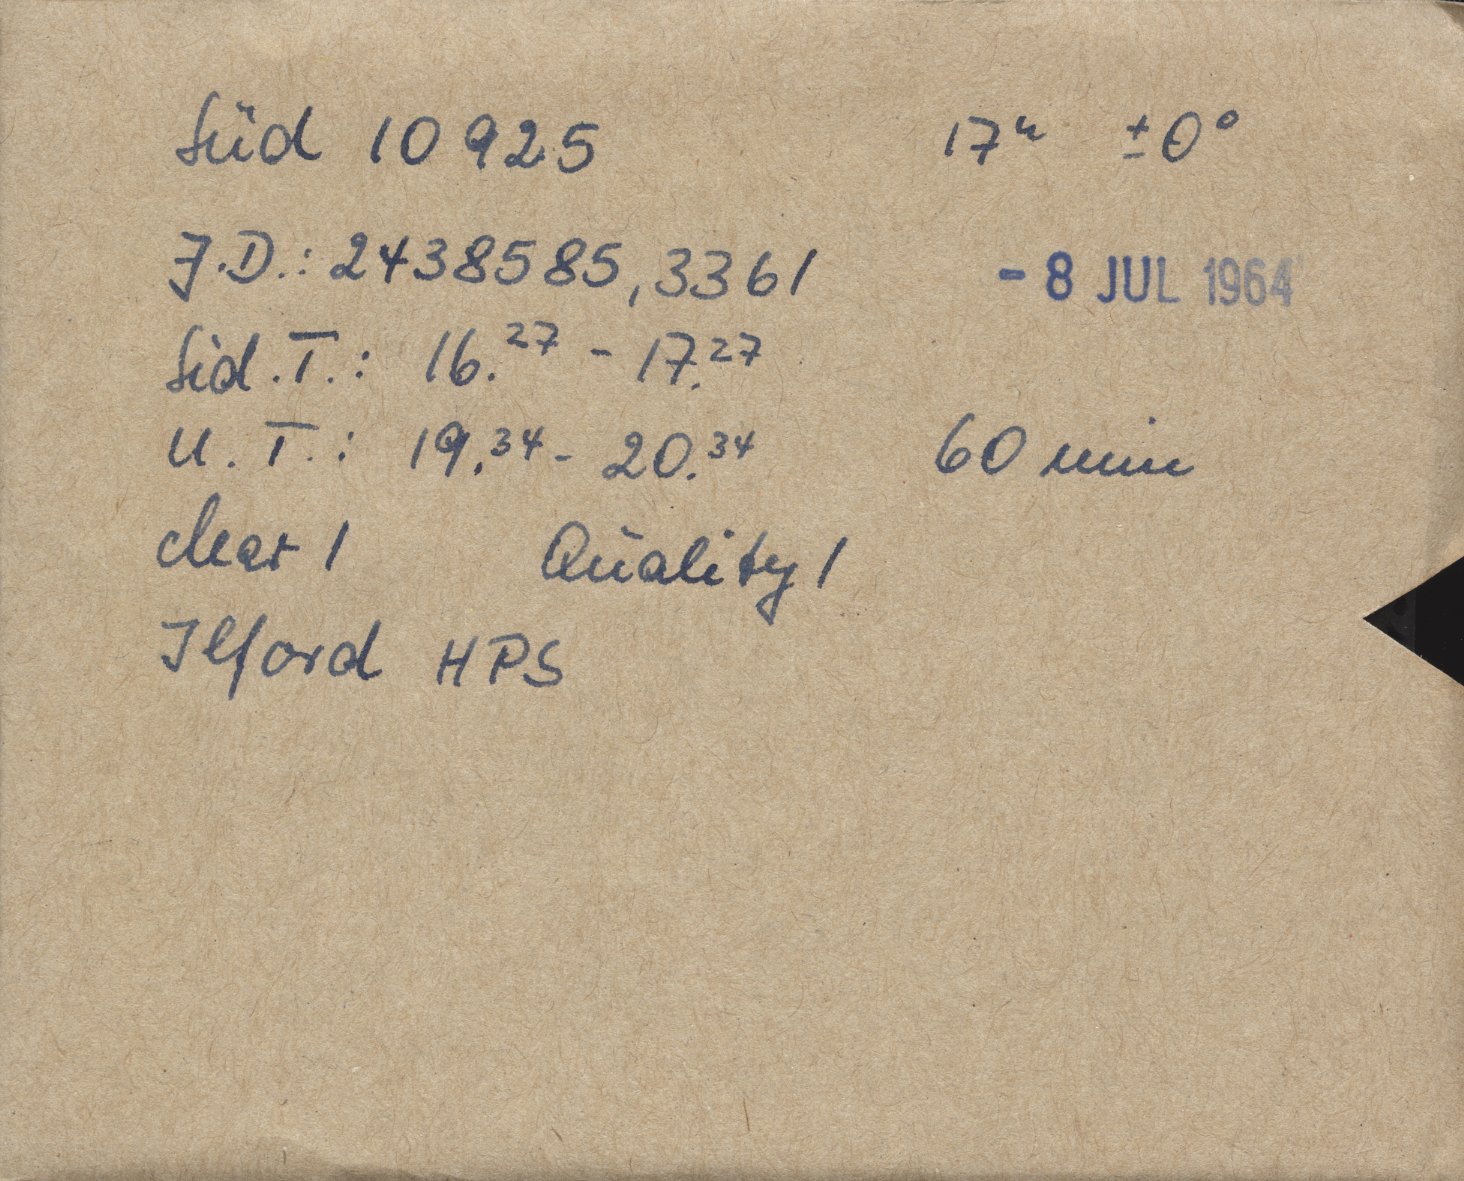 Süd 10925 17ʰ ±0°
J.D.: 2438585,3361 - 8 JUL 1964
Sid.T.: 16.²⁷ - 17.²⁷
U.T.: 19.³⁴ - 20.³⁴ 60 min
clear 1 Quality 1
Ilford HPS